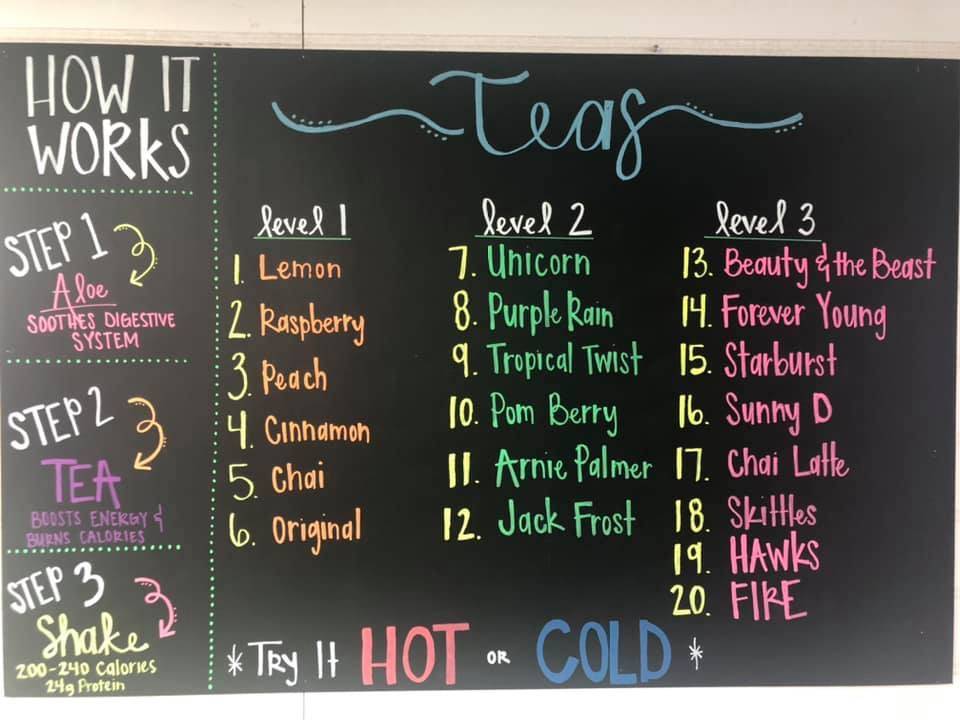 HOW IT
WORKS
STEP 1
Aloe
SOOTHES DIGESTIVE
SYSTEM
STEP 2
TEA
BOOSTS ENERGY &
BURNS CALORIES
STEP 3
Shake
200-240 Calories
24g Protein
Teas
level 1
1. Lemon
2. Raspberry
3. Peach
4. Cinnamon
5. Chai
6. Original
level 2
7. Unicorn
8. Purple Rain
9. Tropical Twist
10. Pom Berry
11. Arnie Palmer
12. Jack Frost
level 3
13. Beauty & the Beast
14. Forever Young
15. Starburst
16. Sunny D
17. Chai Latte
18. Skittles
19. HAWKS
20. FIRE
*TRY It HOT OR COLD*